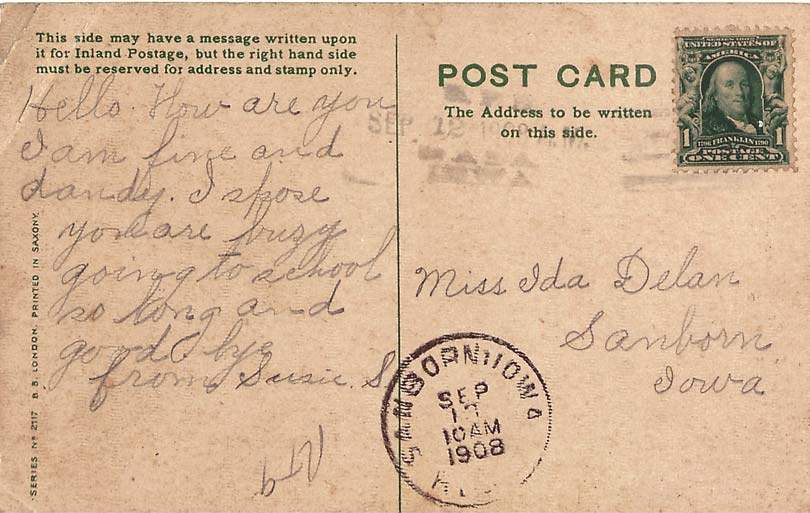 This side may have a message written upon
it for Inland Postage, but the right hand side
must be reserved for address and stamp only.
Hello. How are you
I am fine and
dandy. I spose
you are buzy
going to school
so long and
good bye
from Susie. S.
SERIES No 2117 B.B. LONDON. PRINTED IN SAXONY.
POST CARD
The Address to be written
on this side.
SEP 12
SERIES 1902
UNITED STATES OF
AMERICA
1706 FRANKLIN 1790
1 POSTAGE 1
ONE CENT
Miss Ida Delan
Sanborn
Iowa
SANBORN IOWA
SEP
10AM
1908